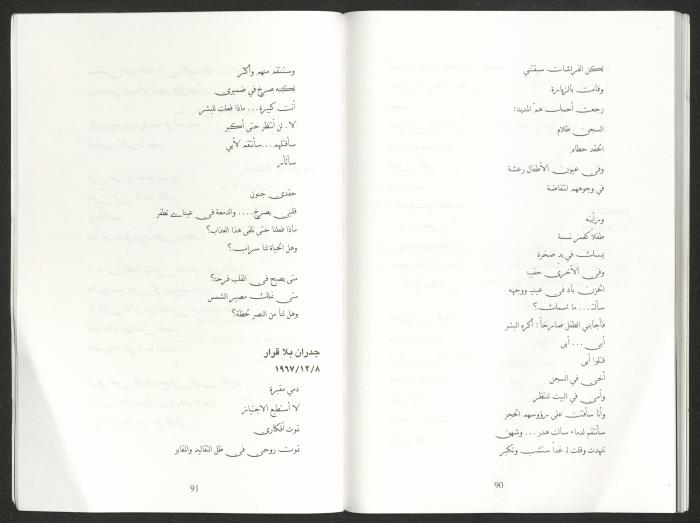 لكن الفراشات سبقتني
وقامت بالزيارة
رجعت أحمل همّ المدينة:
السجن ظلام
الحقد حطام
وفي عيون الأطفال رعشة
في وجوههم انتفاضة
ورأيته
طفلاً كقمر نسمة
يمسك في يد صخرة
وفي الأخرى حقيبة
الحزن باد في عينيه ووجهه
سألته... ما اسمك؟
فأجابني الطفل صارخاً: أكره البشر
أبي... أبي
قتلوا أبي
أخي في السجن
وأمي في البيت تنتظر
وأنا سألقت على رؤوسهم الحجر
سأنتقم لدماء سالت هدر... وشهق
تنهدت وقلت له غداً ستشب وتكبر
90
وستنتقم منهم وأكثر
لكنه صرخ في ضميري
أنت كبيرة... ماذا فعلت للبشر
لا. لن أنتظر حتى أكبر
سأقتلهم... سأنتقم لأمي
سأثأر
حقدي جنون
قلبي يصرخ.... والدمعة في عيناي تطفر
ماذا فعلنا حتى نلقى هذا العذاب؟
وهل الحياة لنا سراب؟
متى يصبح في القلب فرحنا؟
متى نملك مصير الشمس
وهل لنا من النصر لحظة؟
جدران بلا قرار
١٩٦٧/١٢/٨
دمي مقبرة
لا أستطيع الاجتياز
تموت أفكاري
تموت روحي في ظل التقاليد والمقابر
91